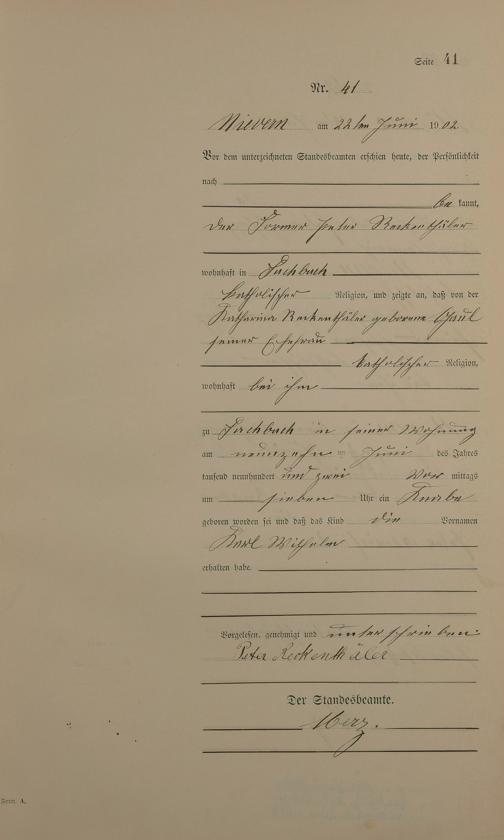 Seite 41
Nr. 41
Nievern am 22ten Juni 1902
Vor dem unterzeichneten Standesbeamten erschien heute, der Persönlichkeit
nach
be kannt,
der Former Peter Reckenthäler
wohnhaft in Fachbach
katholischer Religion, und zeigte an, daß von der
Katharina Reckenthäler geborene Gaul
seiner Ehefrau
katholischer Religion,
wohnhaft bei ihm
zu Fachbach in seiner Wohnung
am neunzehn ten Juni des Jahres
tausend neunhundert und zwei Vor mittags
um sieben Uhr ein Knabe
geboren worden sei und daß das Kind die Vornamen
Karl Wilhelm
erhalten habe.
Vorgelesen, genehmigt und unterschrieben:
Peter Reckenthäler
Der Standesbeamte.
Merz.
Form. A.